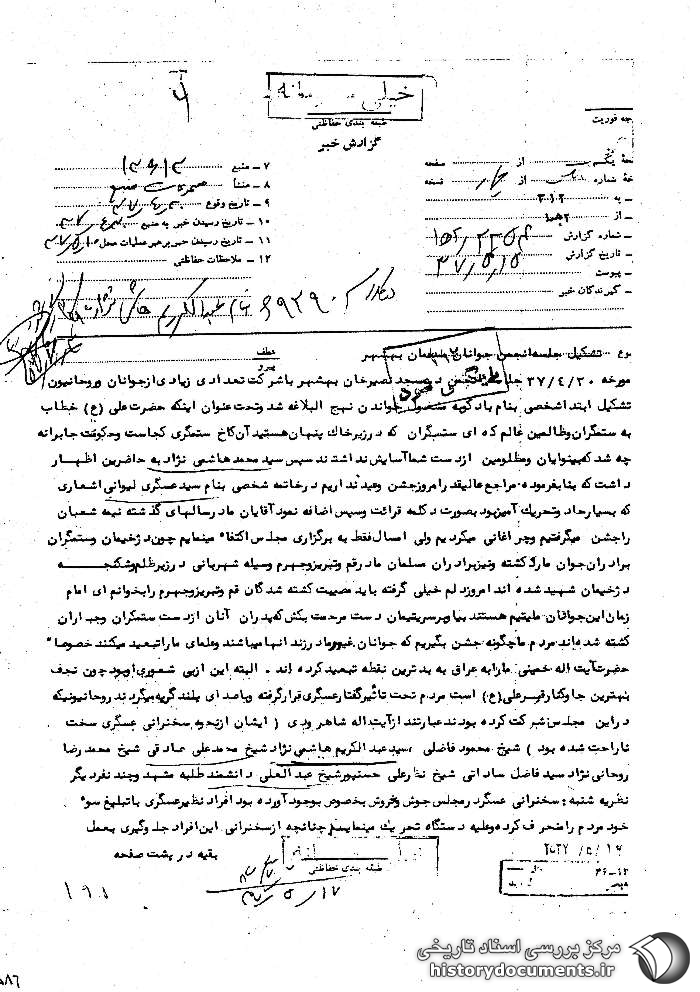 خیلی محرمانه
طبقه بندی حفاظتی
گزارش خبر
جه فوریت
۷ ـ منبع
۸ ـ منشأ
۹ ـ تاریخ وقوع
۱۰ ـ تاریخ رسیدن خبر به منبع
۱۱ ـ تاریخ رسیدن خبر برهبر عملیات محل
۱۲ ـ ملاحظات حفاظتی
از صفحه
خهٔ شماره از نسخه
ـ به ۳۱۲
ـ از
ـ شماره گزارش
ـ تاریخ گزارش ۳۷/۵/۱۵
ـ پیوست
ـ گیرندگان خبر
عطف
پیرو
وع تشکیل جلسه انجمن جوانان مسلمان بهشهر
مورخه ۳۷/۴/۳۰ در مسجد نصیرخان بهشهر با شرکت تعدادی زیادی از جوانان و روحانیون
تشکیل ابتدا شخصی بنام بادکوبه مشغول خواندن نهج البلاغه شد و تحت عنوان اینکه حضرت علی (ع) خطاب
به ستمگران و ظالمین عالم که ای ستمگران که در زیر خاک پنهان هستید آن کاخ ستمگری کجاست و حکومت جابرانه
چه شد که بینوایان و مظلومین از دست شما آسایش نداشتند سپس سید محمد هاشمی نژاد به حاضرین اظهار
داشت که بنا بفرموده مراجع عالیقدر امروز جشن و عید نداریم در خاتمه شخصی بنام سید عسگری لیوانی اشعاری
که بسیار حاد و تحریک آمیز بود بصورت دکلمه قرائت و سپس اضافه نمود آقایان ما در سالهای گذشته نیمه شعبان
را جشن میگرفتیم و چراغانی میکردیم ولی امسال فقط به برگزاری مجلس اکتفاء مینمایم چون دژخیمان و ستمگران
برادران جوان مارا کشته و نیز برادران مسلمان ما در قم و تبریز و جهرم وسیله شهربانی در زیر ظلم و شکنجه
دژخیمان شهید شده اند امروز دلم خیلی گرفته باید مصیبت کشته شدگان قم و تبریز و جهرم را بخوانم ای امام
زمان این جوانان ملیتیم هستند بیا و بر سر یتیمان دست مرحمت بکش که پدران آنان از دست ستمگران و جباران
کشته شده اند مردم ما چگونه جشن بگیریم که جوانان غیور ما در زندانها میباشند و علمای مارا تبعید میکنند خصوصاً
حضرت آیت اله خمینی مارا به عراق به بدترین نقطه تبعید کرده اند . البته این از بی شعوری او بود چون نجف
بهترین جا و کنار قبر علی (ع) است مردم تحت تأثیر گفتار عسگری قرار گرفته و با صدای بلند گریه میکردند روحانیونیکه
در این مجلس شرکت کرده بودند عبارتند از آیت اله شاهرودی ( ایشان از نحوه سخنرانی عسگری سخت
ناراحت شده بود ) شیخ محمود فاضلی ، سید عبدالکریم هاشمی نژاد شیخ محمد علی صادقی شیخ محمد رضا
روحانی نژاد سید فاضل ساداتی شیخ نظر علی حسنپور شیخ عبدالعلی دانشمند طلبه مشهد و چند نفر دیگر
نظریه شنبه : سخنرانی عسگر در مجلس جوش و خروش بخصوص بوجود آورده بود افراد نظیر عسگری با تبلیغ سوء
خود مردم را منحرف کرده و علیه دستگاه تحریک مینمایند چنانچه از سخنرانی این افراد جلوگیری بعمل
بقیه در پشت صفحه
طبقه بندی حفاظتی
۱۹۱
۵۸۶
مرکز بررسی اسناد تاریخی
historydocuments.ir